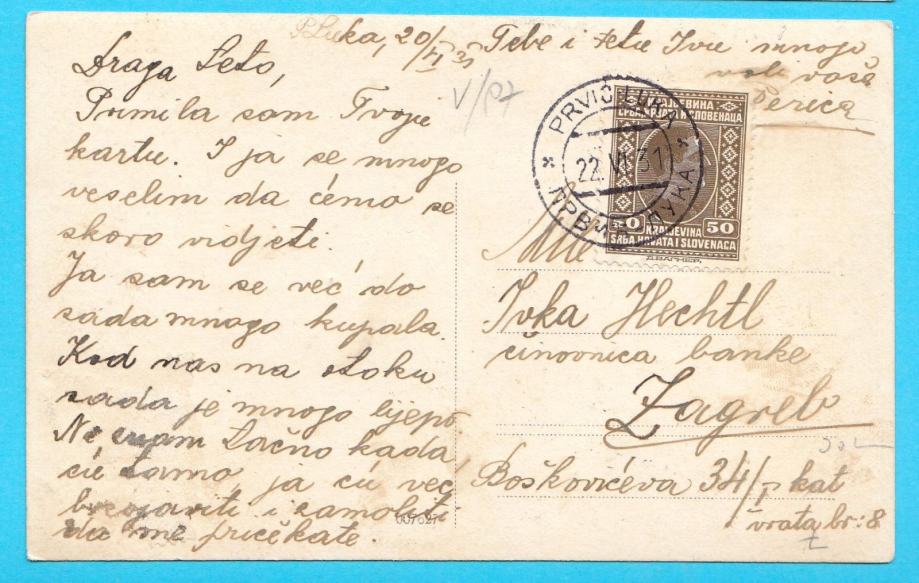 P.Luka, 20/VI 31
Draga Seto,
Primila sam Tvoju
kartu. I ja se mnogo
veselim da ćemo se
skoro vidjeti.
Ja sam se već do
sada mnogo kupala.
Kod nas na otoku
sada je mnogo lijepo.
Ne znam tačno kada
ću tamo, ja ću već
brzojaviti i zamoliti
da me pričekate.
Tebe i tetu Ivu mnogo
voli vaša
Perica
V/87
PRVIĆ LUKA
22. VI. 31
ПРВИЋ ЛУКА
СРБА ХРВАТА И СЛОВЕНАЦА
50 50
KRALJEVINA
SRBA HRVATA I SLOVENACA
Mlle
Ivka Hechtl
činovnica banke
Zagreb
Boškovićeva 34/I kat
vrata br: 8